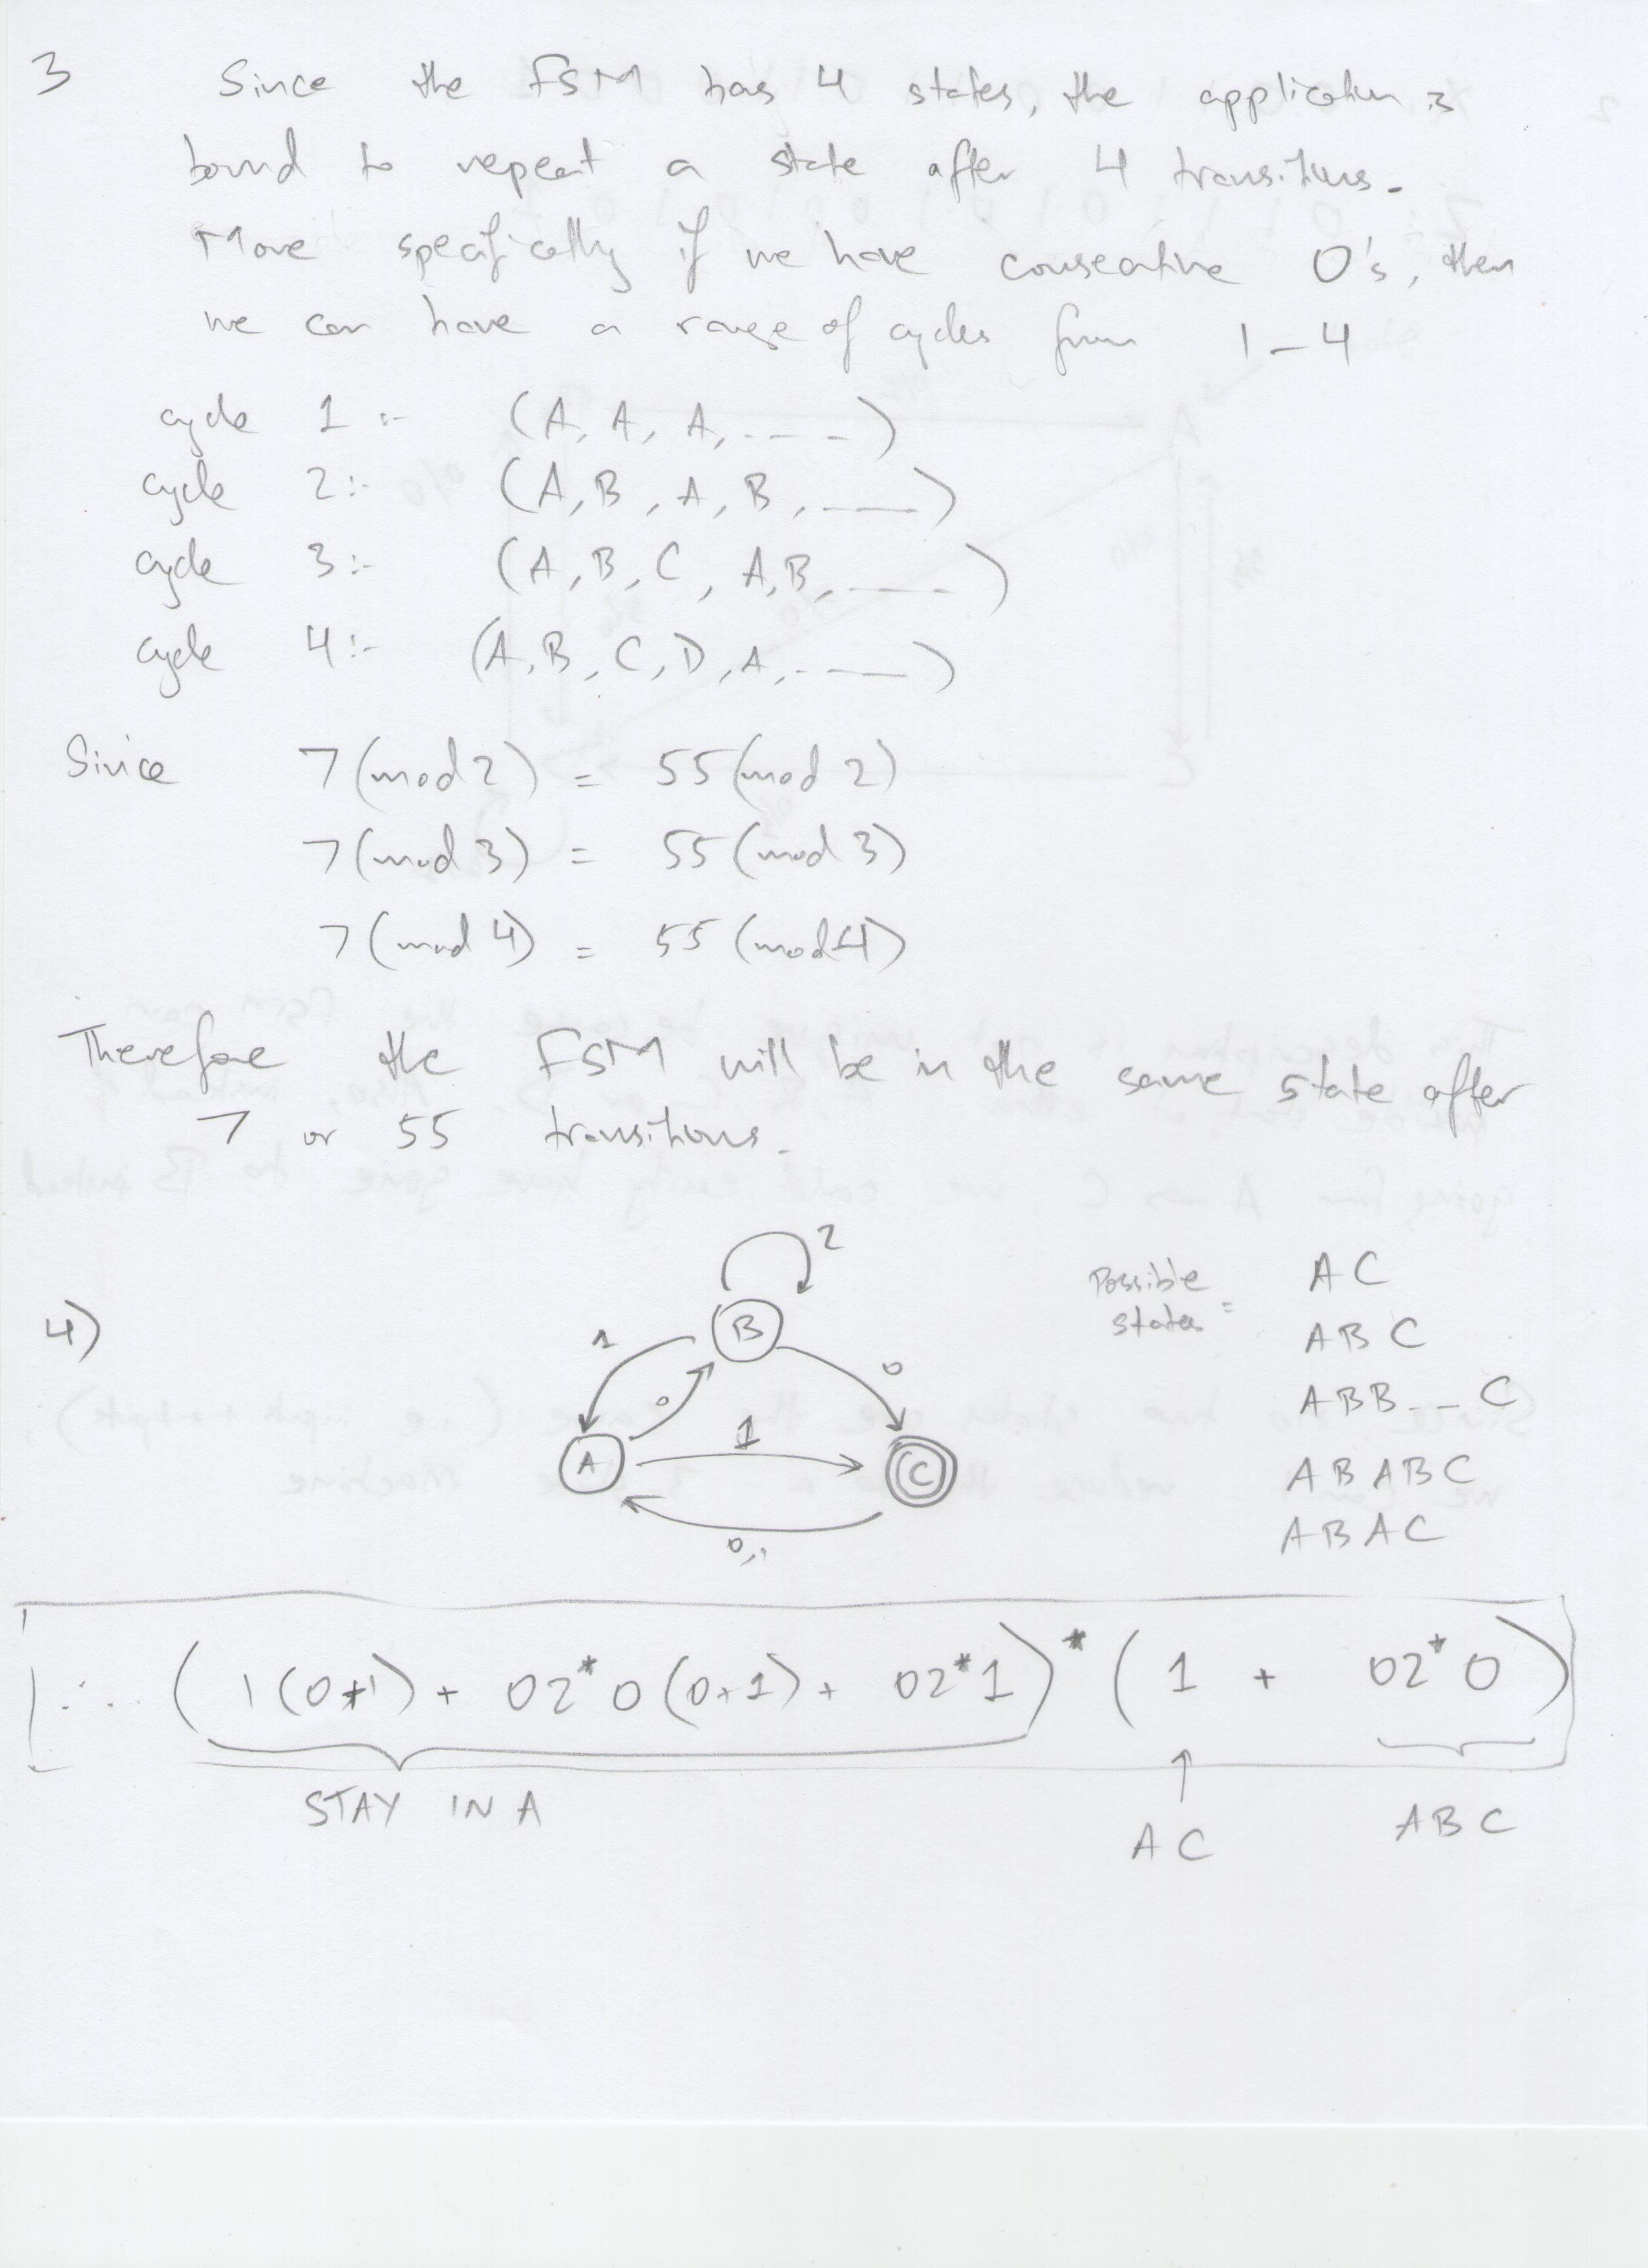 3 Since the FSM has 4 states, the application is
bound to repeat a state after 4 transitions.
More specifically if we have consecutive 0's, then
we can have a range of cycles from 1-4
cycle 1:- (A, A, A, ----)
cycle 2:- (A, B, A, B, ----)
cycle 3:- (A, B, C, A, B, ----)
cycle 4:- (A, B, C, D, A, ----)
Since 7 (mod 2) = 55 (mod 2)
7 (mod 3) = 55 (mod 3)
7 (mod 4) = 55 (mod 4)
Therefore the FSM will be in the same state after
7 or 55 transitions.
4)
2
B
1
0
0
A
1
C
0,1
Possible states =
AC
ABC
ABB--C
ABABC
ABAC
∴ (1(0+1) + 02*0(0+1) + 02*1)* (1 + 02*0)
STAY IN A
AC
ABC